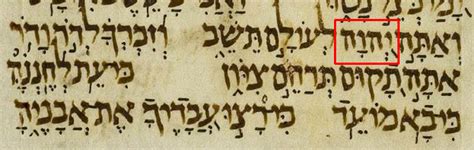 וְאַתָּה יְהוָה לְעוֹלָם תֵּשֵׁב וְזִכְרְךָ לְדֹר וָדֹר
אַתָּה תָקוּם תְּרַחֵם צִיּוֹן כִּי עֵת לְחֶנְנָהּ
כִּי בָא מוֹעֵד כִּי רָצוּ עֲבָדֶיךָ אֶת אֲבָנֶיהָ